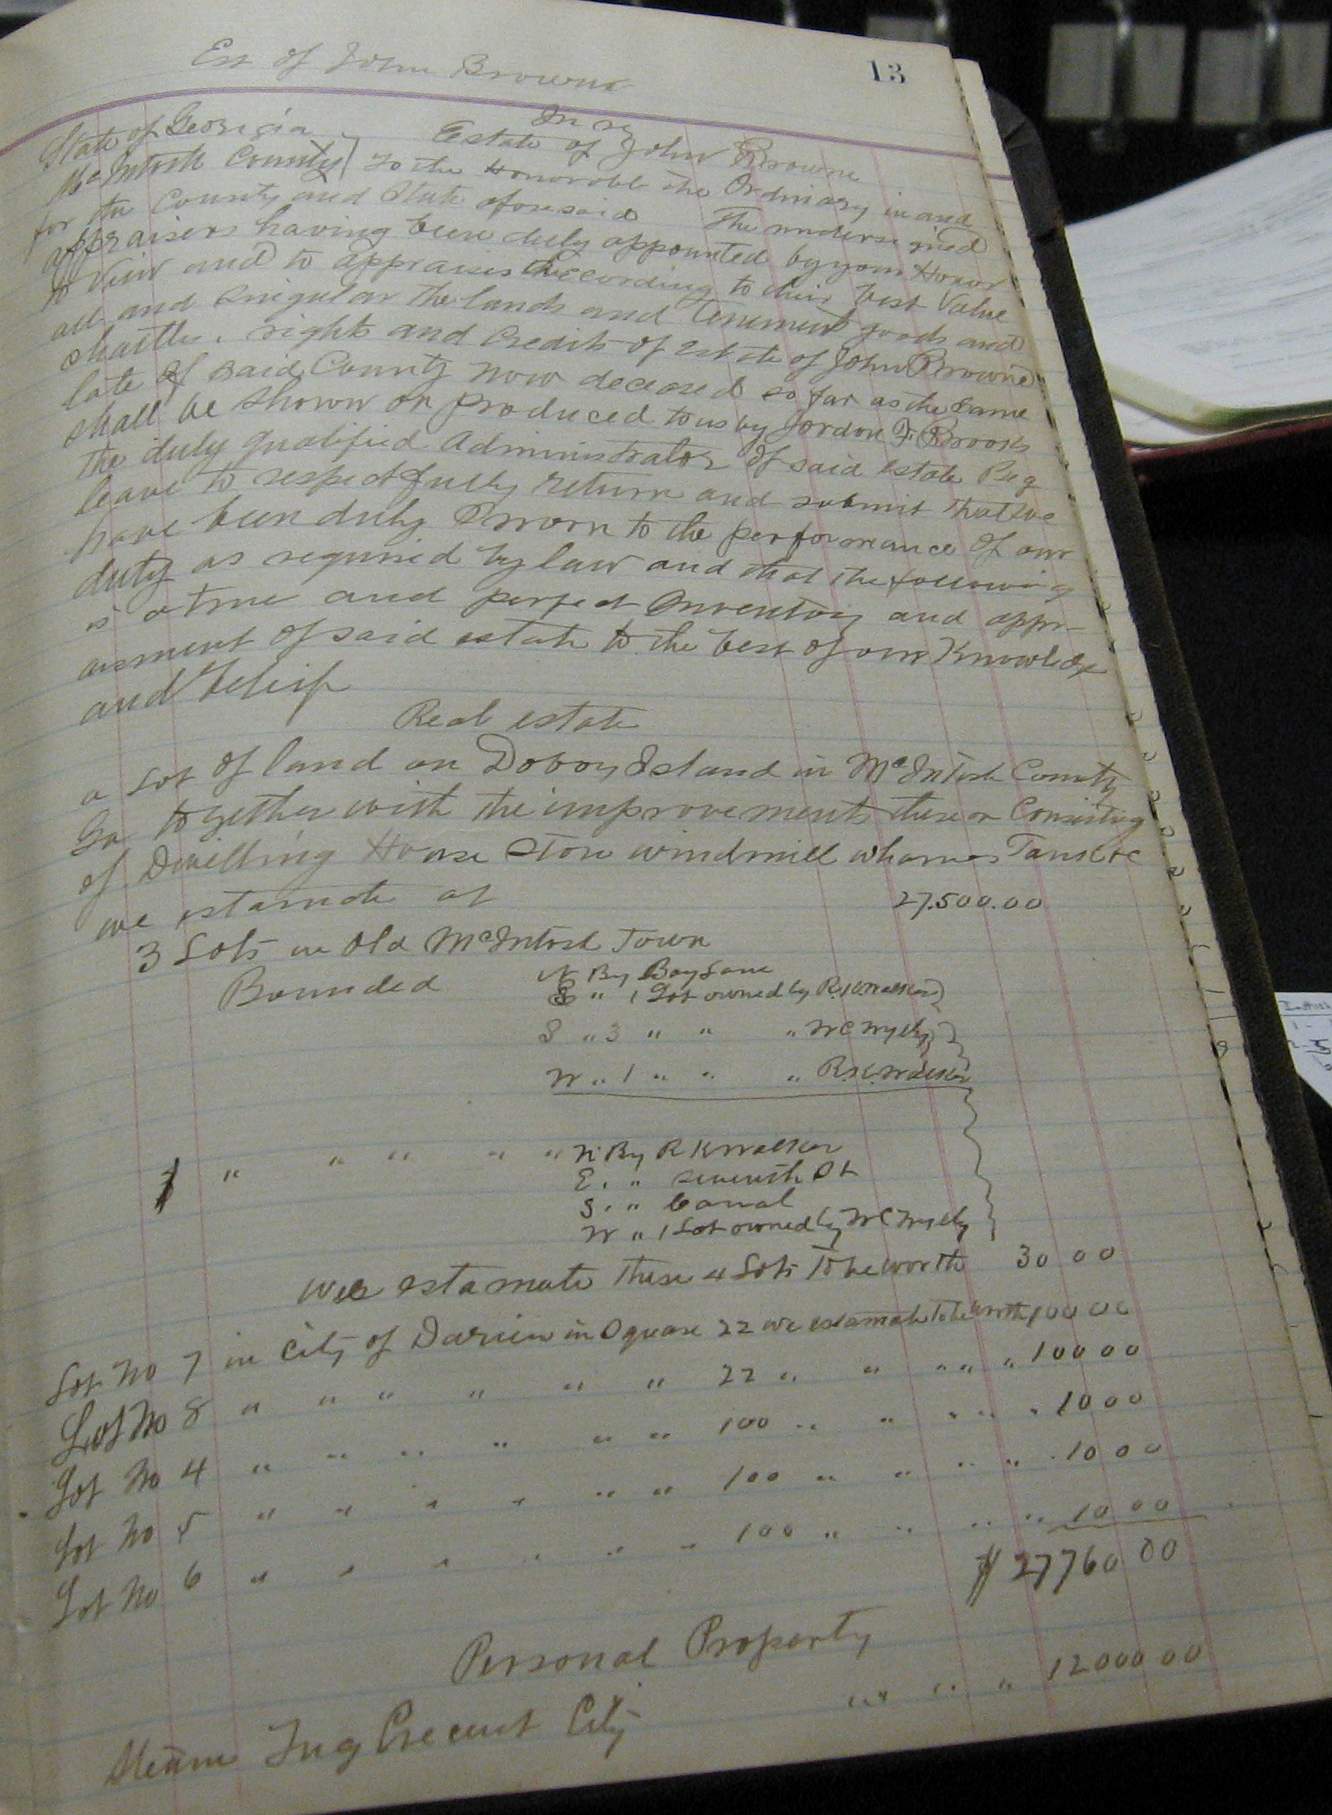 Est of John Browne
13
In re
State of Georgia Estate of John Browne
McIntosh County To the Honorable the Ordinary in and
for the County and State aforesaid The undersigned
appraisers having been duly appointed by your Honor
to View and to appraise according to their best Value
all and singular the lands and tenement goods and
chattles, rights and credits of Estate of John Browne
late of said County now deceased so far as the same
shall be shown or produced to us by Jordon F. Brooks
the duly qualified Administrator of said estate Beg
leave to respectfully return and submit that we
have been duly Sworn to the performance of our
duty as required by law and that the following
is a true and perfect Inventory and appr-
aisment of said estate to the best of our Knowledge
and belief
Real estate
a Lot of land on Doboy Island in McIntosh County
Ga together with the improvements thereon Consisting
of Dwelling House Store windmill wharves Tanks &c
we estamate at 27.500.00
3 Lots in Old McIntosh Town
Bounded N By Bay Lane
E " 1 Lot owned by R.K.Walker
S " 3 " " " W C Wylly
W " 1 " " " R.K.Walker
1 " " " " " N. By R K Walker
E. " Seventh St
S. " Canal
W " 1 Lot owned by W C Wylly
wee estamate these 4 Lots To be worth 30 00
Lot No 7 in City of Darien in Square 22 we estamate to be worth 100 00
Lot No 8 " " " " " " 22 " " " " " 100 00
Lot No 4 " " " " " " 100 " " " " " 10 00
Lot No 5 " " " " " " 100 " " " " " 10 00
Lot No 6 " " " " " " 100 " " " " 10 00
$ 27760 00
Personal Property
Steam Tug Crecent City " " " " 12000 00